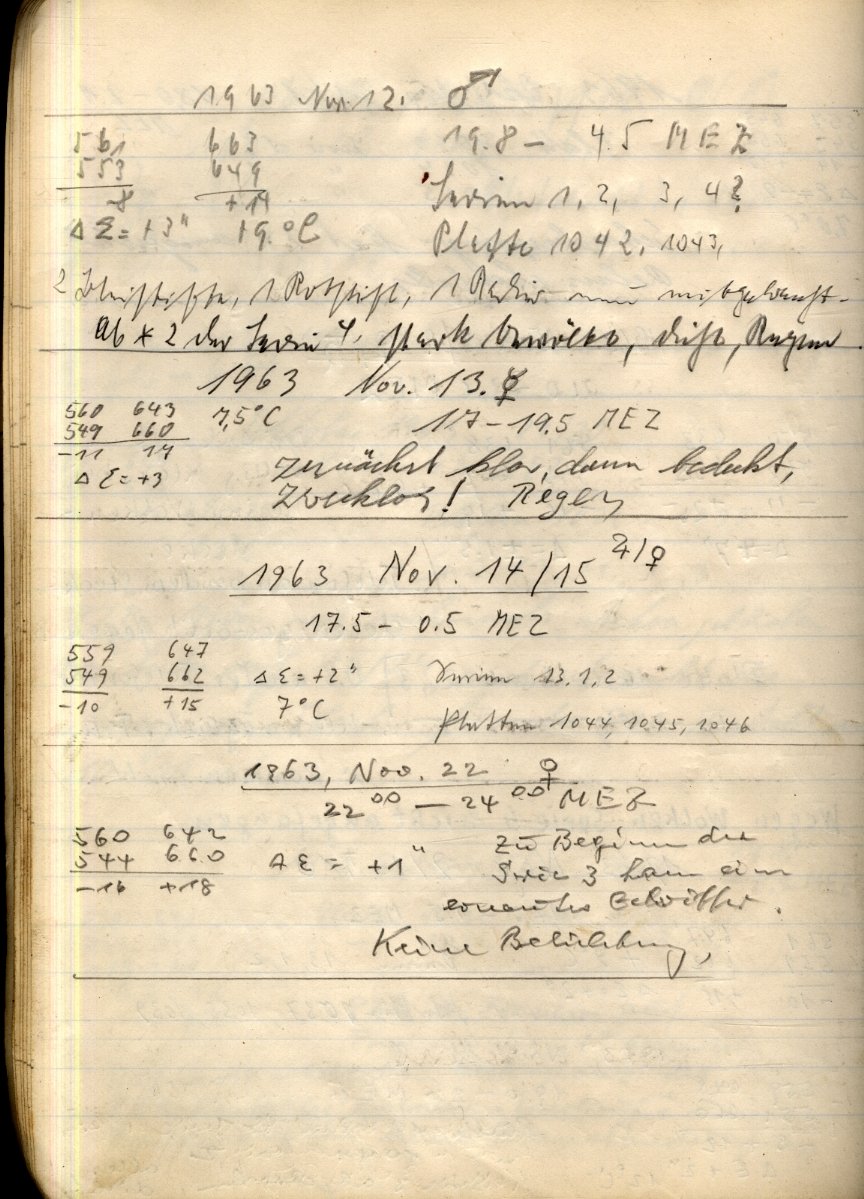 1963 Nov. 12. ♂
561 663 19.8 – 4.5 MEZ
553 649
-8 +14 Serien 1, 2, 3, 4?
Δ Σ = +3" +9.°C Platte 1042, 1043,
2 Bleistifte, 1 Rotstift, 1 neu mitgebracht.
Ab * 2 der Serie 4. stark bewölkt, Regen.
1963 Nov. 13. ☿
560 643 7,5°C 17 – 19.5 MEZ
549 660
-11 17
Δ Σ = +3 zunächst klar, dann bedeckt,
zwecklos! Regen
1963 Nov. 14/15 ♃/♀
17.5 – 0.5 MEZ
559 647
549 662 Δ Σ = +2" Serien 13, 1, 2
-10 +15 7°C
Platten 1044, 1045, 1046
1963, Nov. 22 ♀
22 00 – 24 00 MEZ
560 642 Zu Beginn der
544 660 Δ Σ = +1" Serie 3 kam ein
-16 +18
erneutes
Keine Belichtung,